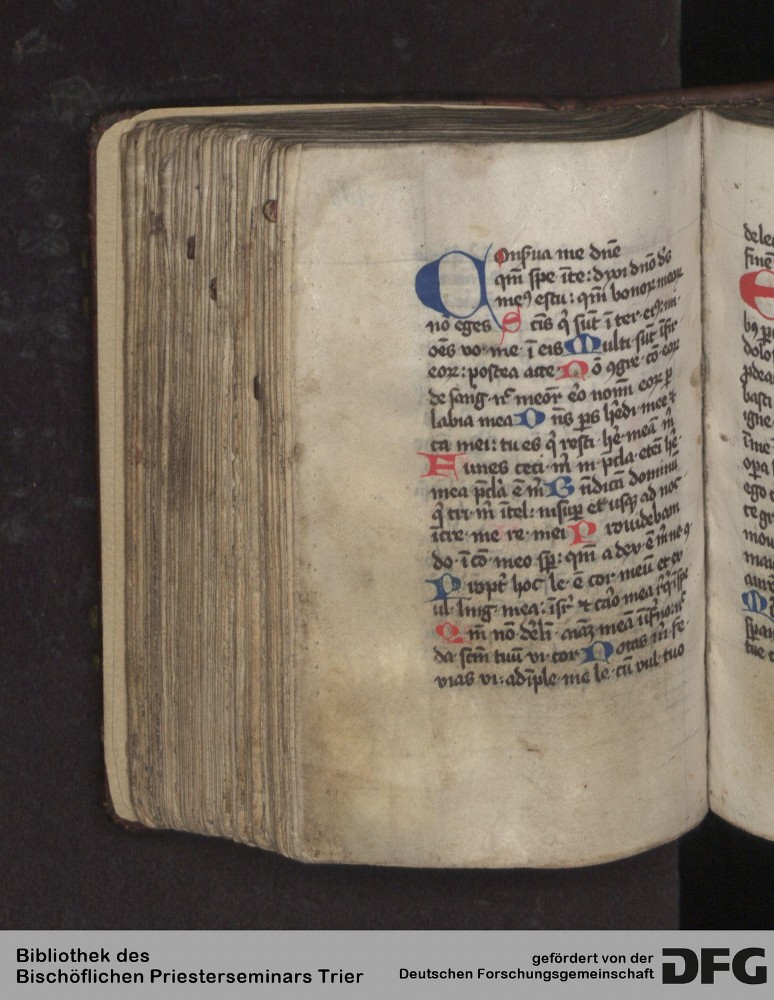 Conſ̑ua me dn̄e
qm̄ ſpe. ī te: dyxi dn̄o d̄s
me⁹ es tu: qm̄ bonoꝝ meoꝝ
nō eges Scīs q̄ ſūt ī ter. eꝰ: mi.
oēs vo. me. ī eis Multi. ſūt īfir.
eoꝝ: poſtea acce. Nō ꝯgre. cō. eoꝝ
de ſang. n̄c meor̄ ēo nomī. eoꝝ ꝑ
labia mea Dn̄s ꝑs hēdi. mee ⁊
ca. mei: tu es q̄ reſti. hē. meā m̄
Funes ceci. m̄ in p̄cla. eteī hē.
mea p̄clā ē m̄ Bn̄dicā dominū
q̄ tri. m̄ ītel: inſuꝑ et uſqꝫ ad noc.
īcre. me re. mei Prouidebam
do. ī cō. meo ſꝑ: qm̄ a dex. ē m̄ ne ꝯ.
Propt̄ hoc le. ē cor meū et ex
ul. ling. mea: īſr̄ ⁊ caro mea rꝗ̄ ī ſpe
Qm̄ nō dēli. aīaꝫ meā ī īfno: n̄c
da. ſcm̄ tuū vi. cor. Notas m̄ fe.
vias vi: adīple. me le. cū vul. tuo
dele
finē
bꝫ
dolo
p̄dea
baſti
igne
ī me
oꝑa
ego
te gr
mou
mai
aur
ſꝑan
tue
Bibliothek des
Bischöflichen Priesterseminars Trier
gefördert von der
Deutschen Forschungsgemeinschaft
DFG